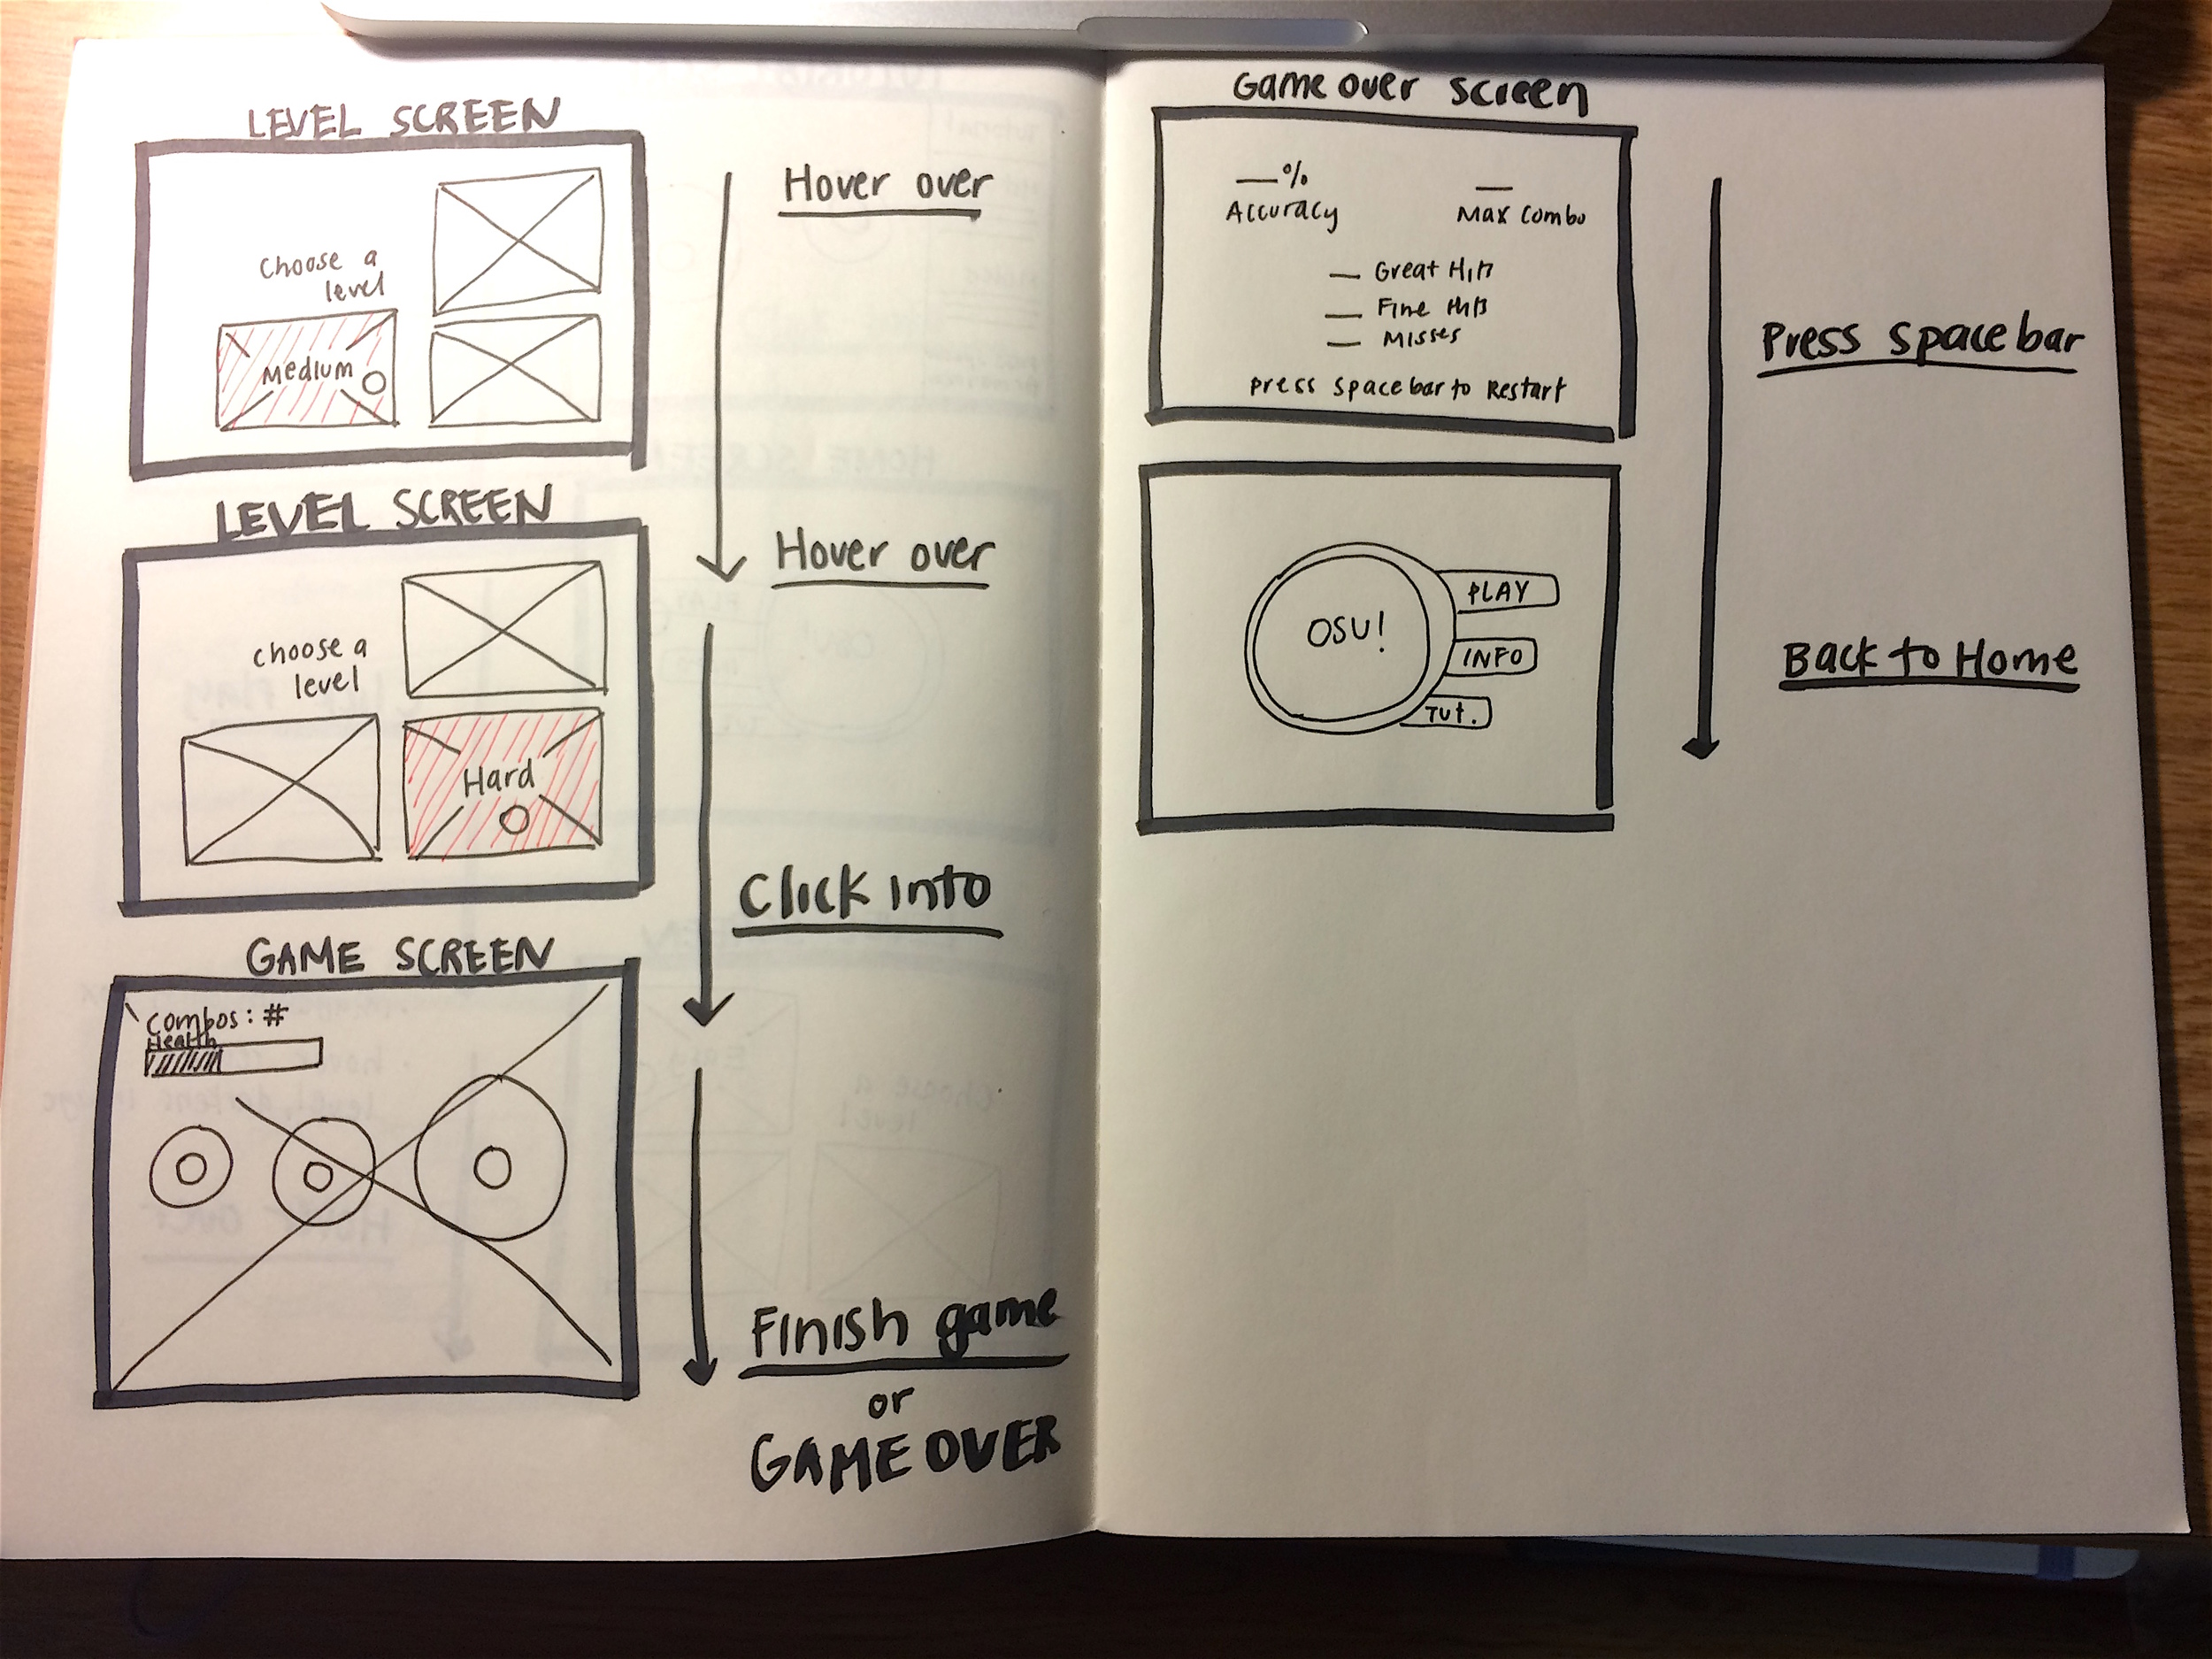 LEVEL SCREEN
Choose a
level
Medium
Hover over
LEVEL SCREEN
choose a
level
Hard
Hover over
Click into
GAME SCREEN
Combos: #
Health
Finish game
or
GAME OVER
Game over screen
—%
Accuracy
—
Max Combo
— Great Hits
— Fine Hits
— Misses
press spacebar to Restart
Press spacebar
OSU!
PLAY
INFO
TUT.
Back to Home